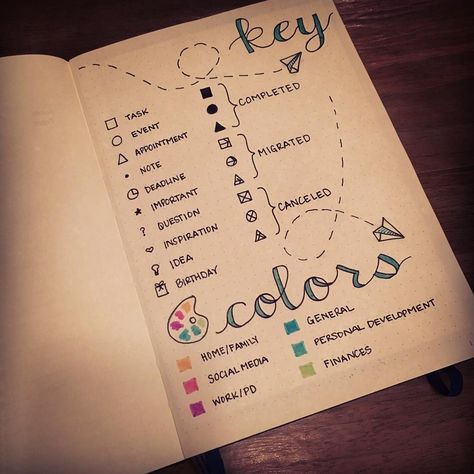 key
TASK
EVENT
APPOINTMENT
NOTE
DEADLINE
IMPORTANT
? QUESTION
INSPIRATION
IDEA
BIRTHDAY
COMPLETED
MIGRATED
CANCELED
colors
HOME/FAMILY
SOCIAL MEDIA
WORK/PD
GENERAL
PERSONAL DEVELOPMENT
FINANCES